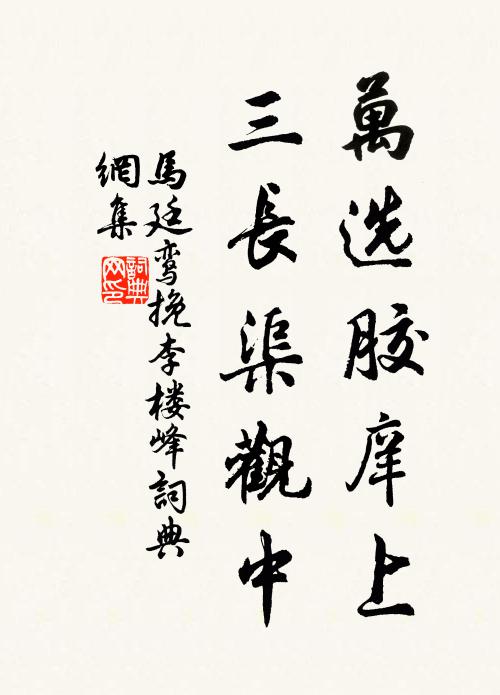 萬选胶庠上
三長渠觀中
馬廷鸾挽李楼峰詞典
網集
詞典
网印